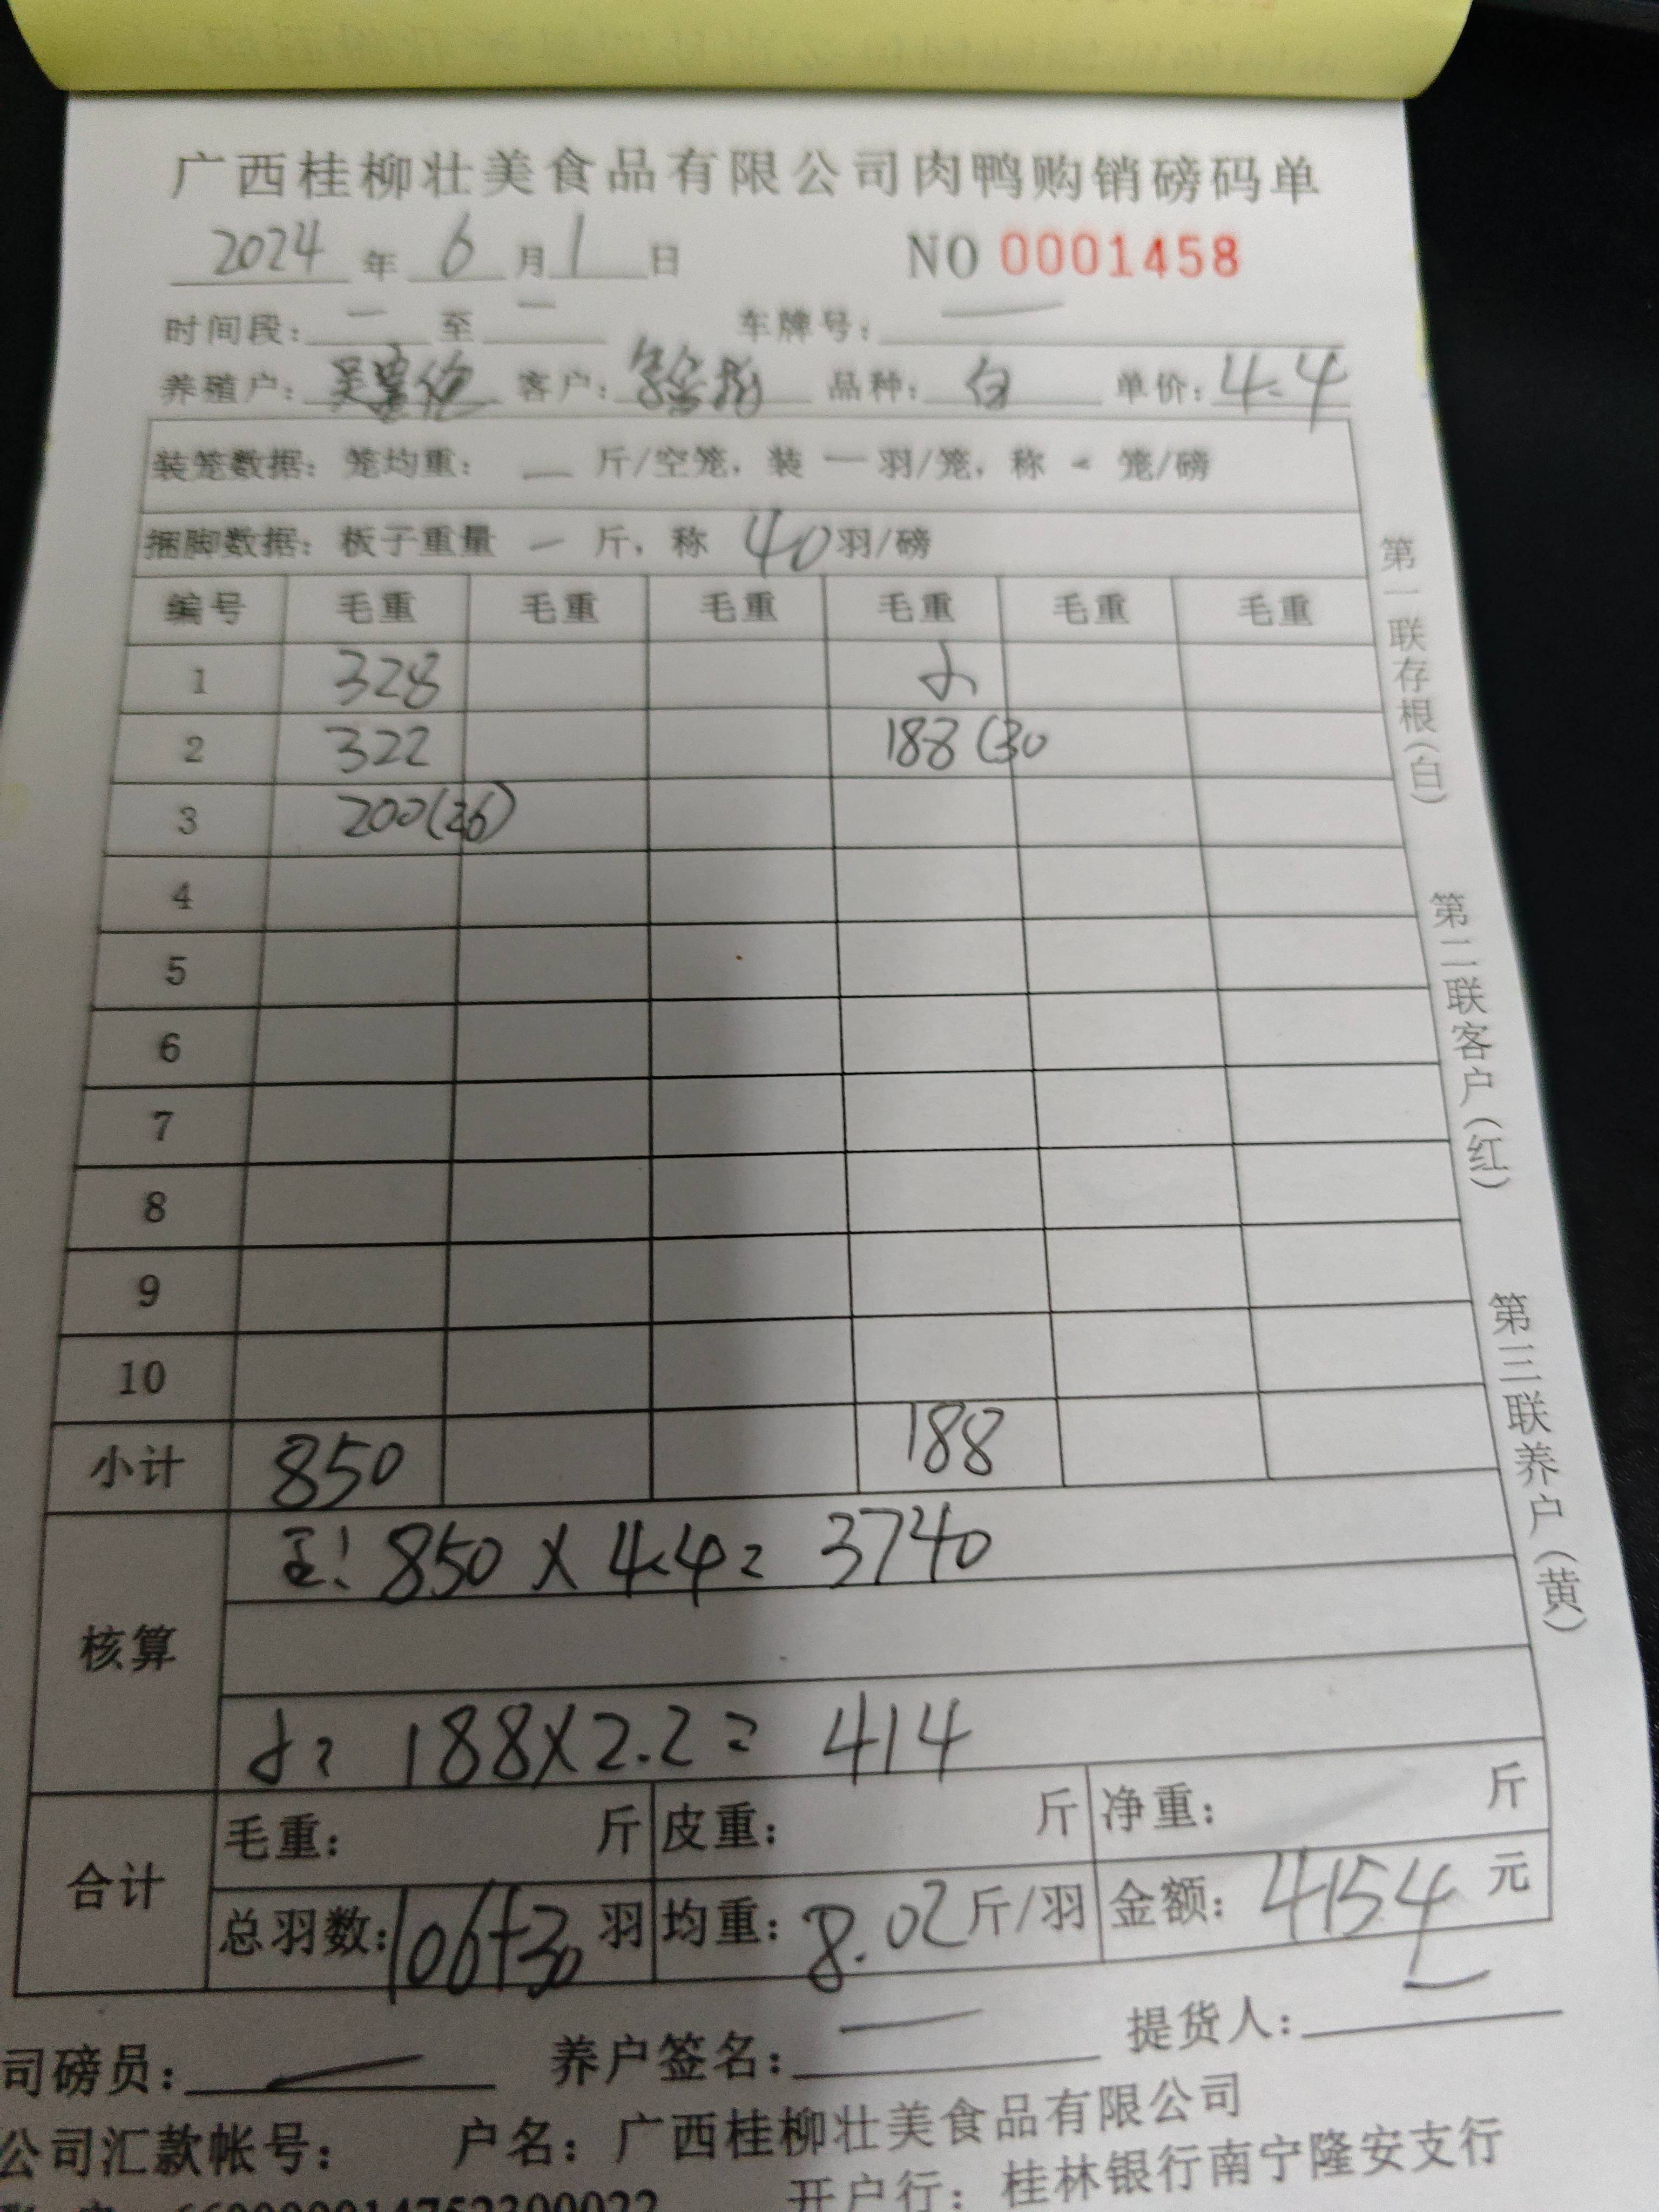 广西桂柳壮美食品有限公司肉鸭购销磅码单
2024 年 6 月 1 日 NO 0001458
时间段: — 至 — 车牌号: —
养殖户: 客户: 品种: 白 单价: 4.4
装笼数据: 笼均重: — 斤/空笼, 装 — 羽/笼, 称 - 笼/磅
捆脚数据: 板子重量 — 斤, 称 40 羽/磅
编号 毛重 毛重 毛重 毛重 毛重 毛重
1 328
2 322 188 (30
3 200(26)
4
5
6
7
8
9
10
小计 850 188
850 X 4.4= 3740
核算
188X2.2= 414
合计
毛重: 斤 皮重: 斤 净重: 斤
总羽数: 106+30 羽 均重: 8.02 斤/羽 金额: 4154 元
司磅员: — 养户签名: — 提货人:
公司汇款帐号: 户名: 广西桂柳壮美食品有限公司
开户行: 桂林银行南宁隆安支行
第一联存根(白)
第二联客户(红)
第三联养户(黄)